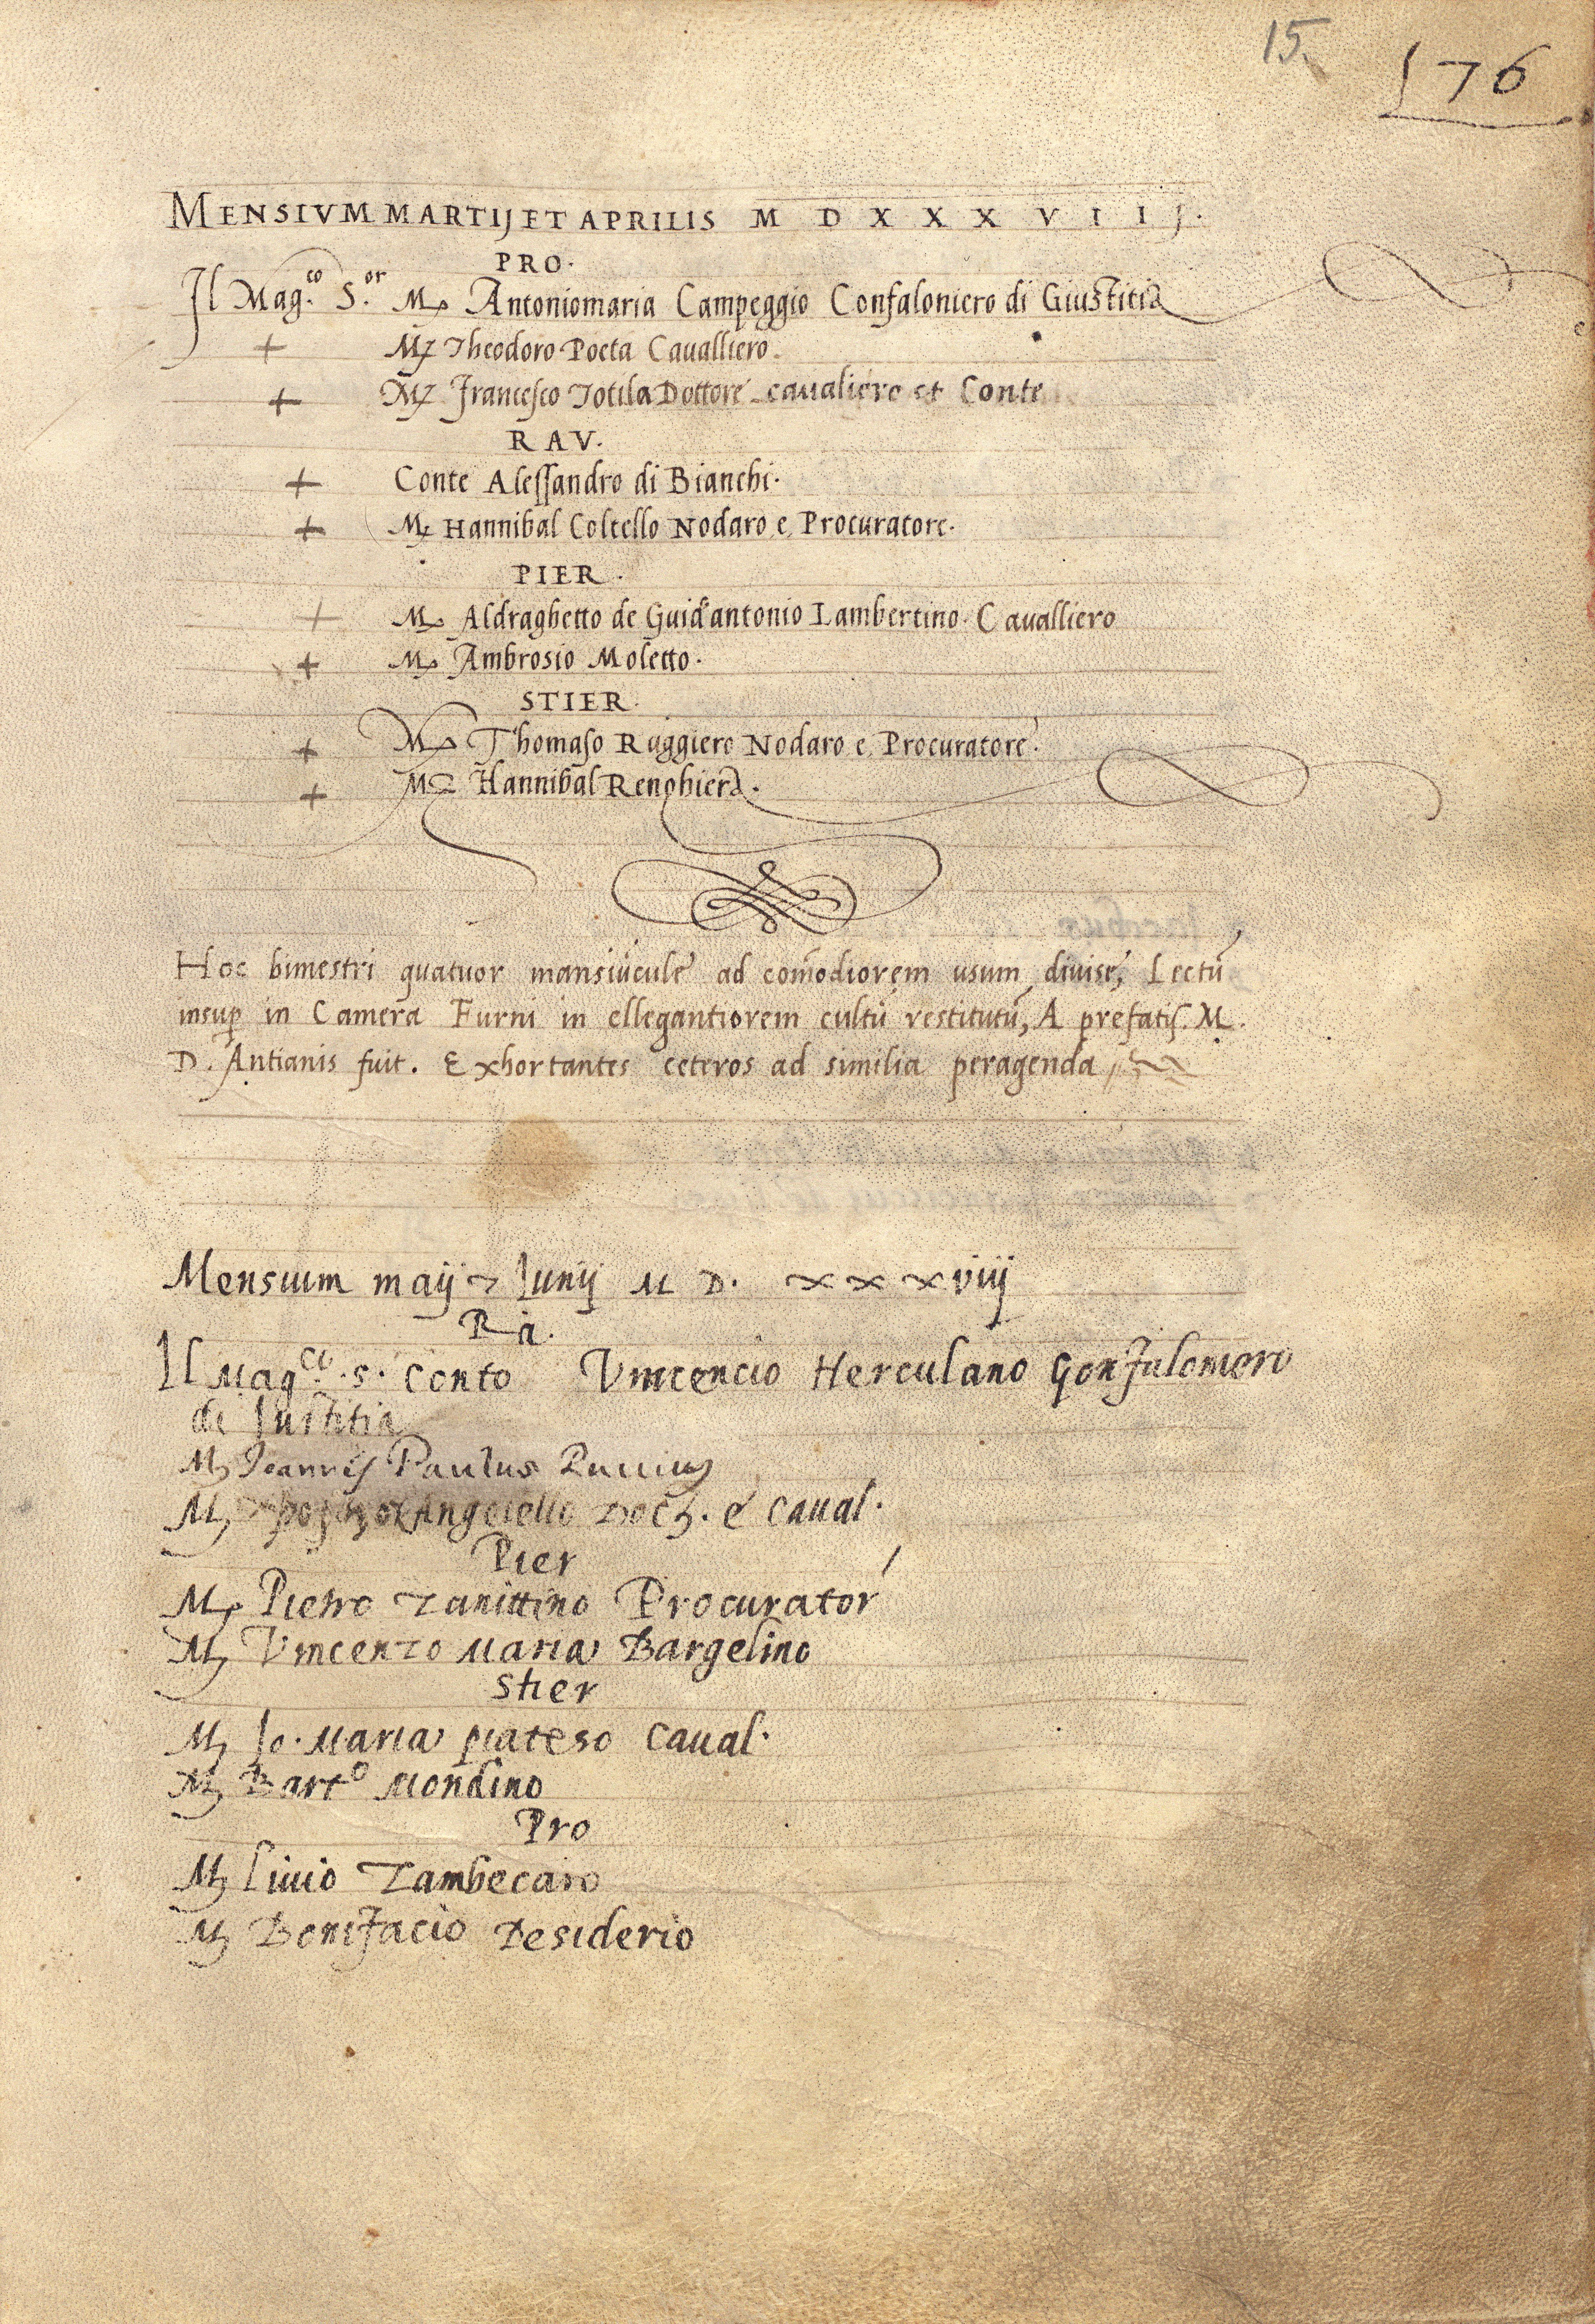 15.
176
MENSIVM MARTIJ ET APRILIS M D X X X V I I J.
PRO.
Il Mag.co S.or M. Antoniomaria Campeggio Confaloniero di Giustitia
+ M. Theodoro Poeta Cavalliero.
+ M. Francesco Totila Dottore cavaliere et Conte
RAV.
+ Conte Alessandro di Bianchi.
+ M. Hannibal Coltello Nodaro e Procuratore.
PIER.
+ M. Aldraghetto de Guid'antonio Lambertino Cavalliero
+ M. Ambrosio Moletto.
STIER.
+ M. Thomaso Ruggiero Nodaro e Procuratore.
+ M. Hannibal Renghiera.
Hoc bimestri quatuor mansiūcule ad com̄odiorem usum divise, Lectū
insup in Camera Furni in ellegantiorem cultū restitutū, A prefatis. M.
D. Antianis fuit. Exhortantes ceteros ad similia peragenda
Mensium maij & Iunij M D. xxxviij
Ra.
Il Mag.co S. Conto Vincencio Herculano Gonfaloniero
di Iustitia
M. Ioannes Paulus
M. Angelello Doct. e Caval.
Pier
M. Pietro Zanittino Procurator
M. Vincenzo Maria Bargelino
Stier
M. Io. Maria piateso Caval.
M. Barto Mondino
Pro
M. Livio Zambecaro
M. Bonifacio Desiderio